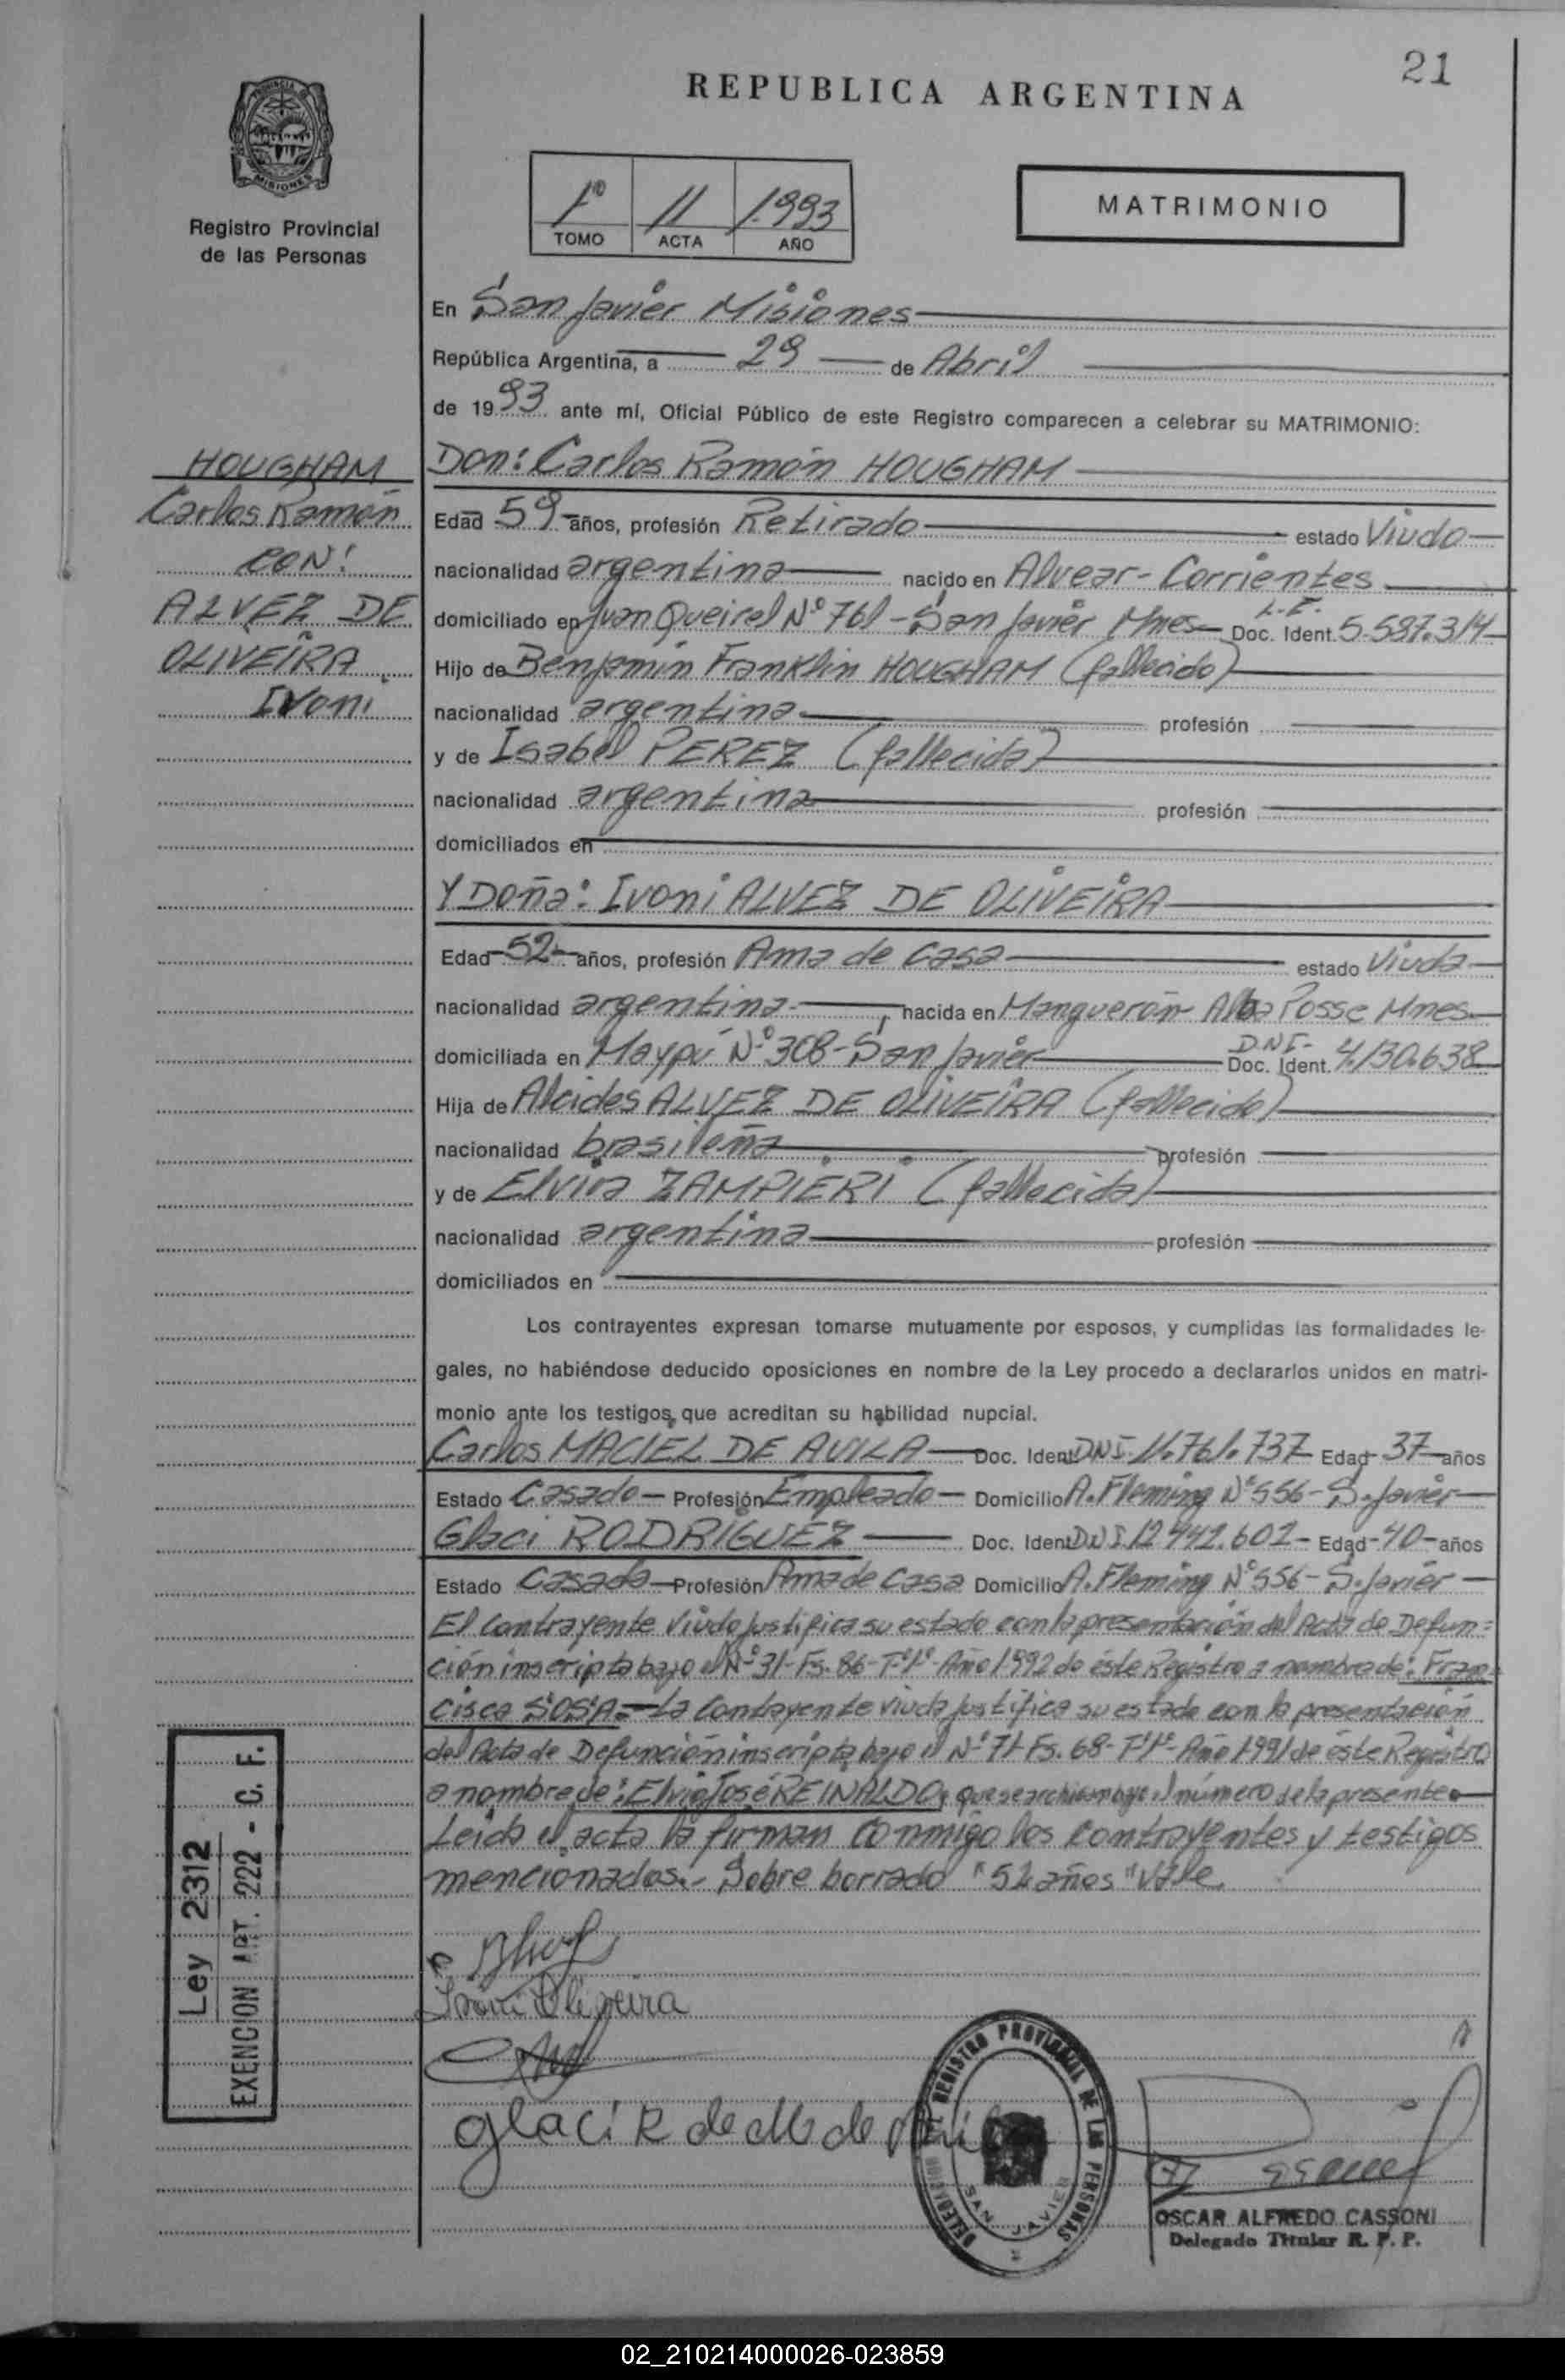 21
REPUBLICA ARGENTINA
PROVINCIA DE
MISIONES
Registro Provincial
de las Personas
1º 11 1.993
TOMO ACTA AÑO
MATRIMONIO
En San Javier Misiones
República Argentina, a 29 de Abril
de 1993 ante mí, Oficial Público de este Registro comparecen a celebrar su MATRIMONIO:
HOUGHAM
Carlos Ramón
CON:
ALVEZ DE
OLIVEIRA
Ivoni
Don: Carlos Ramón HOUGHAM
Edad 59 años, profesión Retirado estado Viudo
nacionalidad argentina nacido en Alvear - Corrientes
domiciliado en Juan Queirel Nº 761 - San Javier Mnes L.E. Doc. Ident. 5.587.314
Hijo de Benjamin Franklin HOUGHAM (fallecido)
nacionalidad argentina profesión
y de Isabel PEREZ (fallecida)
nacionalidad argentina profesión
domiciliados en
Y Doña: Ivoni ALVEZ DE OLIVEIRA
Edad 52 años, profesión Ama de casa estado Viuda
nacionalidad argentina nacida en Manguerón Alba Posse Mnes
domiciliada en Maypú Nº 308 - San Javier D.N.I. Doc. Ident. 4.130.638
Hija de Alcides ALVEZ DE OLIVEIRA (fallecido)
nacionalidad brasileña profesión
y de Elvira ZAMPIERI (fallecida)
nacionalidad argentina profesión
domiciliados en
Los contrayentes expresan tomarse mutuamente por esposos, y cumplidas las formalidades le-
gales, no habiéndose deducido oposiciones en nombre de la Ley procedo a declararlos unidos en matri-
monio ante los testigos, que acreditan su habilidad nupcial.
Carlos MACIEL DE AVILA Doc. Ident DNI. 11.761.737 Edad 37 años
Estado Casado - Profesión Empleado - Domicilio A. Fleming Nº 556 - S. Javier
Glaci RODRIGUEZ Doc. Ident DNI 12.942.602 - Edad - 40 - años
Estado Casada - Profesión Ama de casa Domicilio A. Fleming Nº 556 - S. Javier
El contrayente viudo justifica su estado con la presentación del Acta de Defun=
ción inscripta bajo el Nº 31 - Fs. 86 - Tº 1º - Año 1992 de éste Registro a nombre de: Fran=
cisca SOSA = La contrayente viuda justifica su estado con la presentación
del Acta de Defunción inscripta bajo el Nº 71 - Fs. 68 - Tº 1º - Año 1991 de éste Registro
a nombre de: Elvio José REINALDO, que se archivan bajo el número de la presente.
Leída el acta la firman conmigo los contrayentes y testigos
mencionados. - Sobre borrado "52 años" Vale.
Ley 2312
EXENCION ART. 222 - C. F.
Ivoni Oliveira
glaci R de M de
REGISTRO PROVINCIAL DE LAS PERSONAS
DELEGACION
SAN JAVIER
OSCAR ALFREDO CASSONI
Delegado Titular R. P. P.
02_210214000026-023859